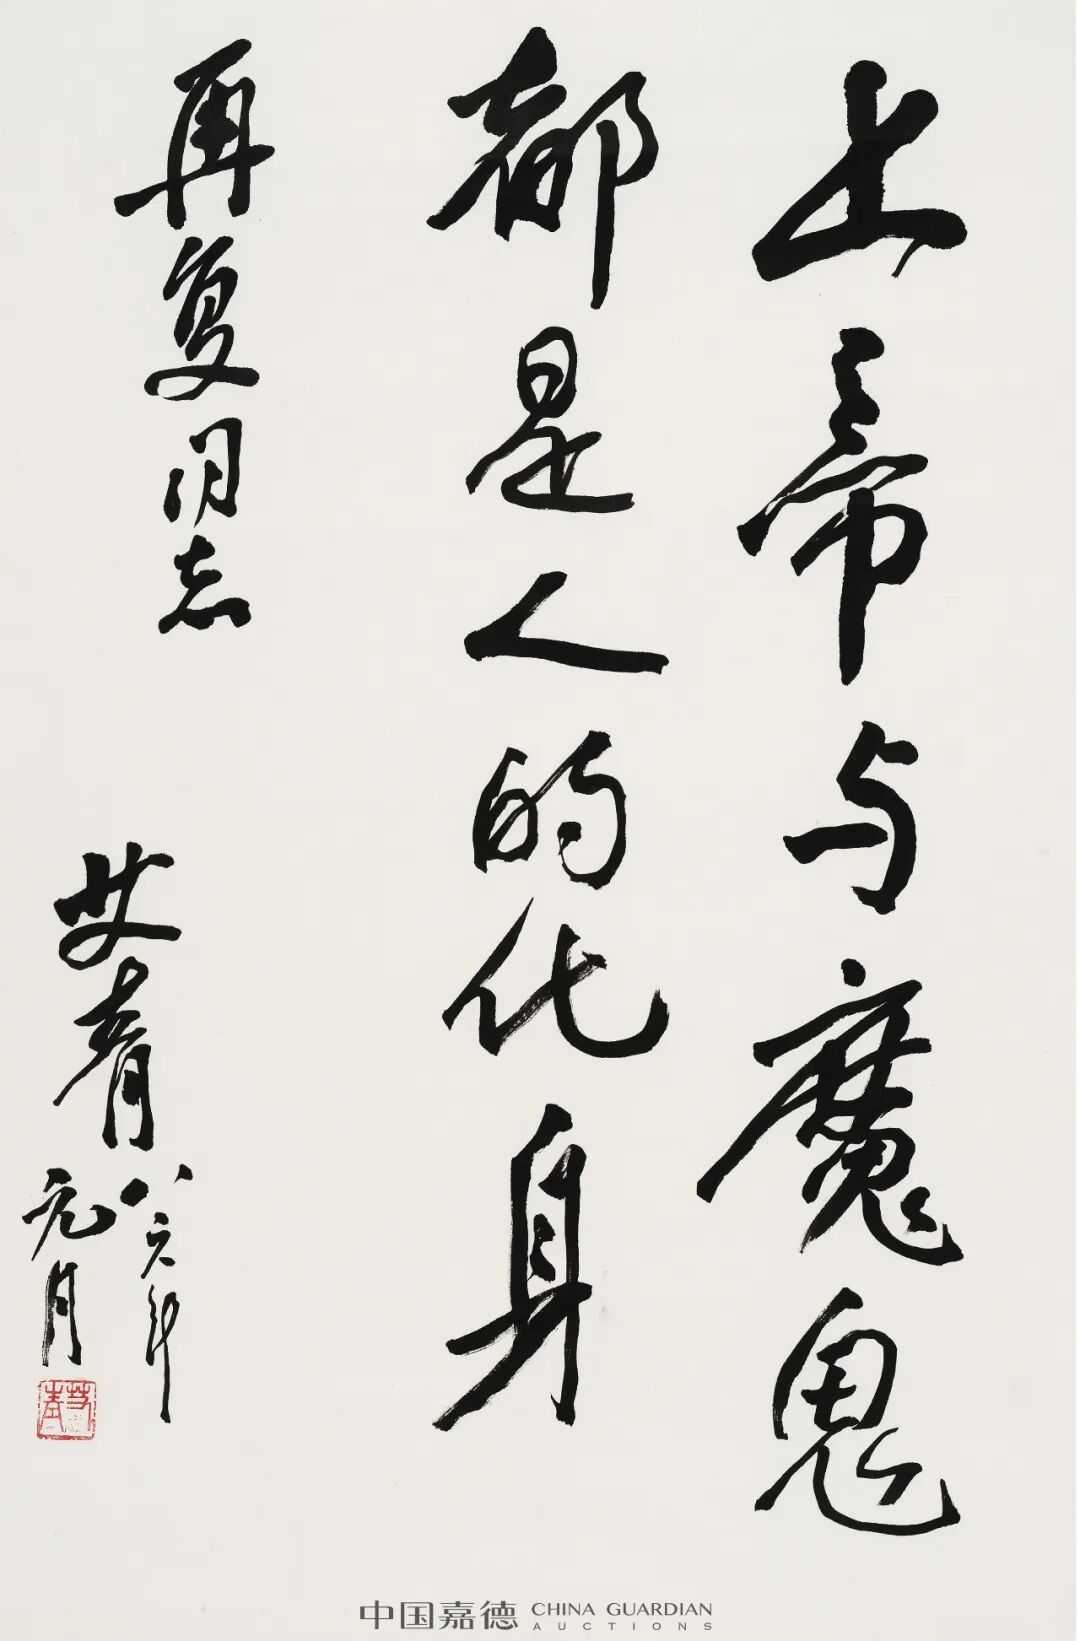 上帝与魔鬼
都是人的化身
再复同志
艾青
八六年
元月
中国嘉德 CHINA GUARDIAN
AUCTIONS